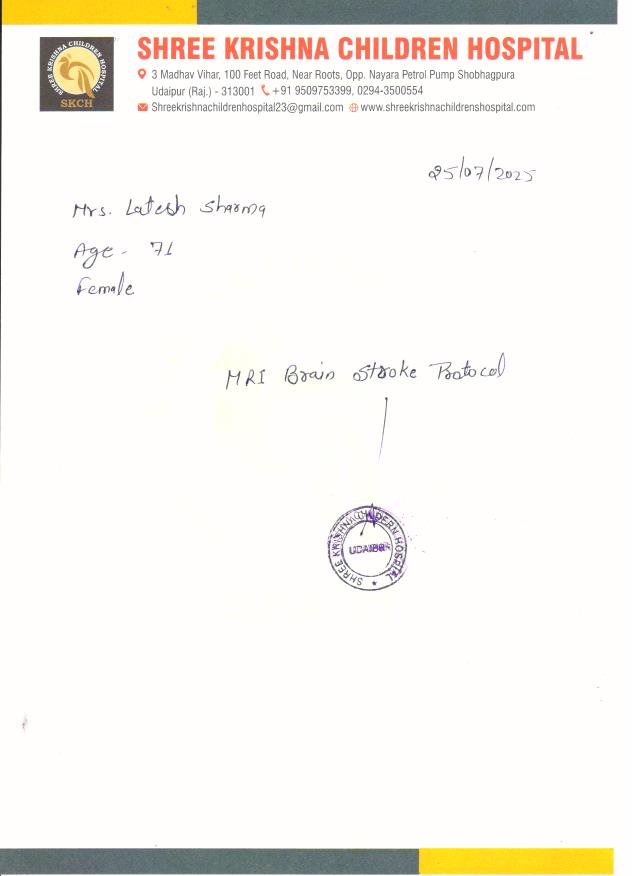 SHREE KRISHNA CHILDREN HOSPITAL
SHREE KRISHNA CHILDREN HOSPITAL
SKCH
3 Madhav Vihar, 100 Feet Road, Near Roots, Opp. Nayara Petrol Pump Shobhagpura
Udaipur (Raj.) - 313001 +91 9509753399, 0294-3500554
Shreekrishnachildrenhospital23@gmail.com www.shreekrishnachildrenshospital.com
25/07/2025
Mrs. Latesh Sharma
Age - 71
Female
MRI Brain Stroke Protocol
SHREE KRISHNA HOSPITAL
UDAIPUR